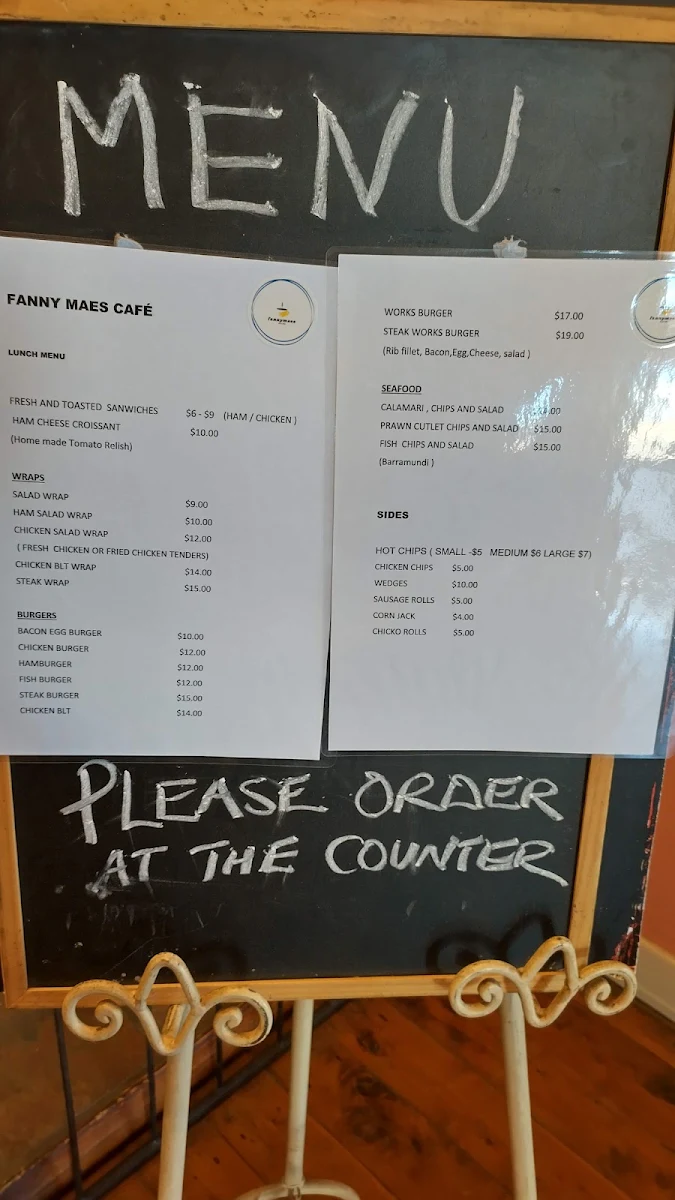 MENU
FANNY MAES CAFÉ
fannymaes
LUNCH MENU
FRESH AND TOASTED SANWICHES $6 - $9 (HAM / CHICKEN )
HAM CHEESE CROISSANT $10.00
(Home made Tomato Relish)
WRAPS
SALAD WRAP $9.00
HAM SALAD WRAP $10.00
CHICKEN SALAD WRAP $12.00
( FRESH CHICKEN OR FRIED CHICKEN TENDERS)
CHICKEN BLT WRAP $14.00
STEAK WRAP $15.00
BURGERS
BACON EGG BURGER $10.00
CHICKEN BURGER $12.00
HAMBURGER $12.00
FISH BURGER $12.00
STEAK BURGER $15.00
CHICKEN BLT $14.00
WORKS BURGER $17.00
STEAK WORKS BURGER $19.00
(Rib fillet, Bacon,Egg,Cheese, salad )
SEAFOOD
CALAMARI , CHIPS AND SALAD
PRAWN CUTLET CHIPS AND SALAD $15.00
FISH CHIPS AND SALAD $15.00
(Barramundi )
SIDES
HOT CHIPS ( SMALL -$5 MEDIUM $6 LARGE $7)
CHICKEN CHIPS $5.00
WEDGES $10.00
SAUSAGE ROLLS $5.00
CORN JACK $4.00
CHICKO ROLLS $5.00
PLEASE ORDER
AT THE COUNTER